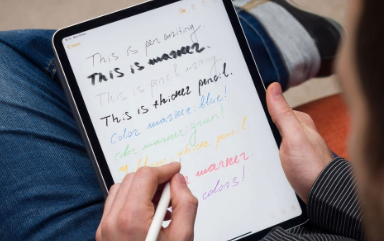 This is pen writing.
This is marker.
This is pencil writing
This is thicker pencil.
Color marker blue!
color marker green!
thicker pencil
marker
colors!